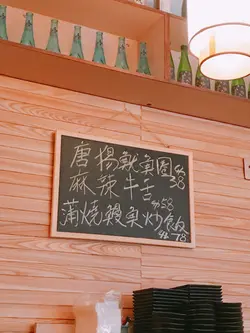 唐揚魷魚圈 $38
麻辣牛舌 $58
蒲燒鰻魚炒飯 $78